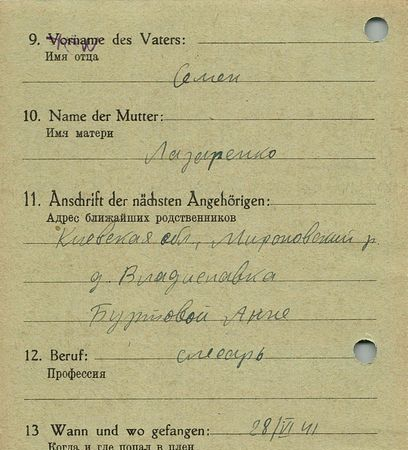 9. Vorname des Vaters:
Имя отца
Семен
10. Name der Mutter:
Имя матери
Лазаренко
11. Anschrift der nächsten Angehörigen:
Адрес ближайших родственников
Киевская обл, Мироновский р.
д. Владиславка
Анне
12. Beruf: слесарь
Профессия
13 Wann und wo gefangen: 28/VI 41
Когда и где попал в плен